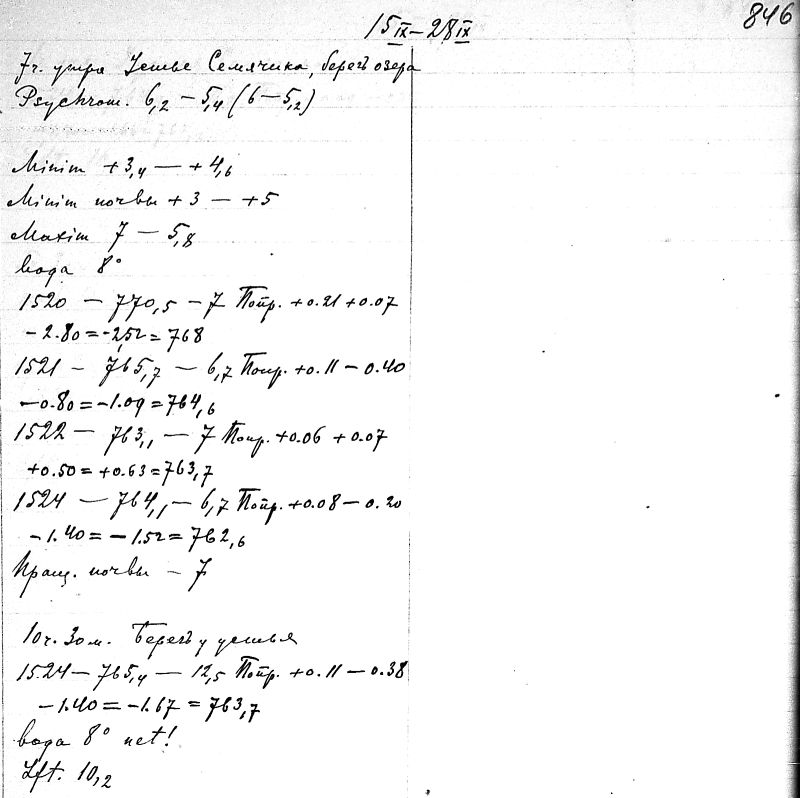 846
15 IX – 28 IX
7 ч. утра Устье Семячика, берегъ озера
Psychrom. 6,2 – 5,4 (6 – 5,2)
Minim +3,4 — +4,6
Minim почвы +3 — +5
Maxim 7 — 5,8
Вода 8°
1520 — 770,5 – 7 Попр. +0.21 +0.07
–2.80 = –2,52 = 768
1521 – 765,7 – 6,7 Попр. +0.11 – 0.40
–0.80 = –1.09 = 764,6
1522 — 763,1 – 7 Попр. +0.06 +0.07
+0.50 = +0.63 = 763,7
1524 — 764,1 – 6,7 Попр. +0.08 – 0.20
–1.40 = –1.52 = 762,6
Пращ. почвы – 7
10 ч. 30 м. Берегъ у устья
1524 – 765,4 – 12,5 Попр. +0.11 – 0.38
–1.40 = –1.67 = 763,7
Вода 8° net!
Lft. 10,2